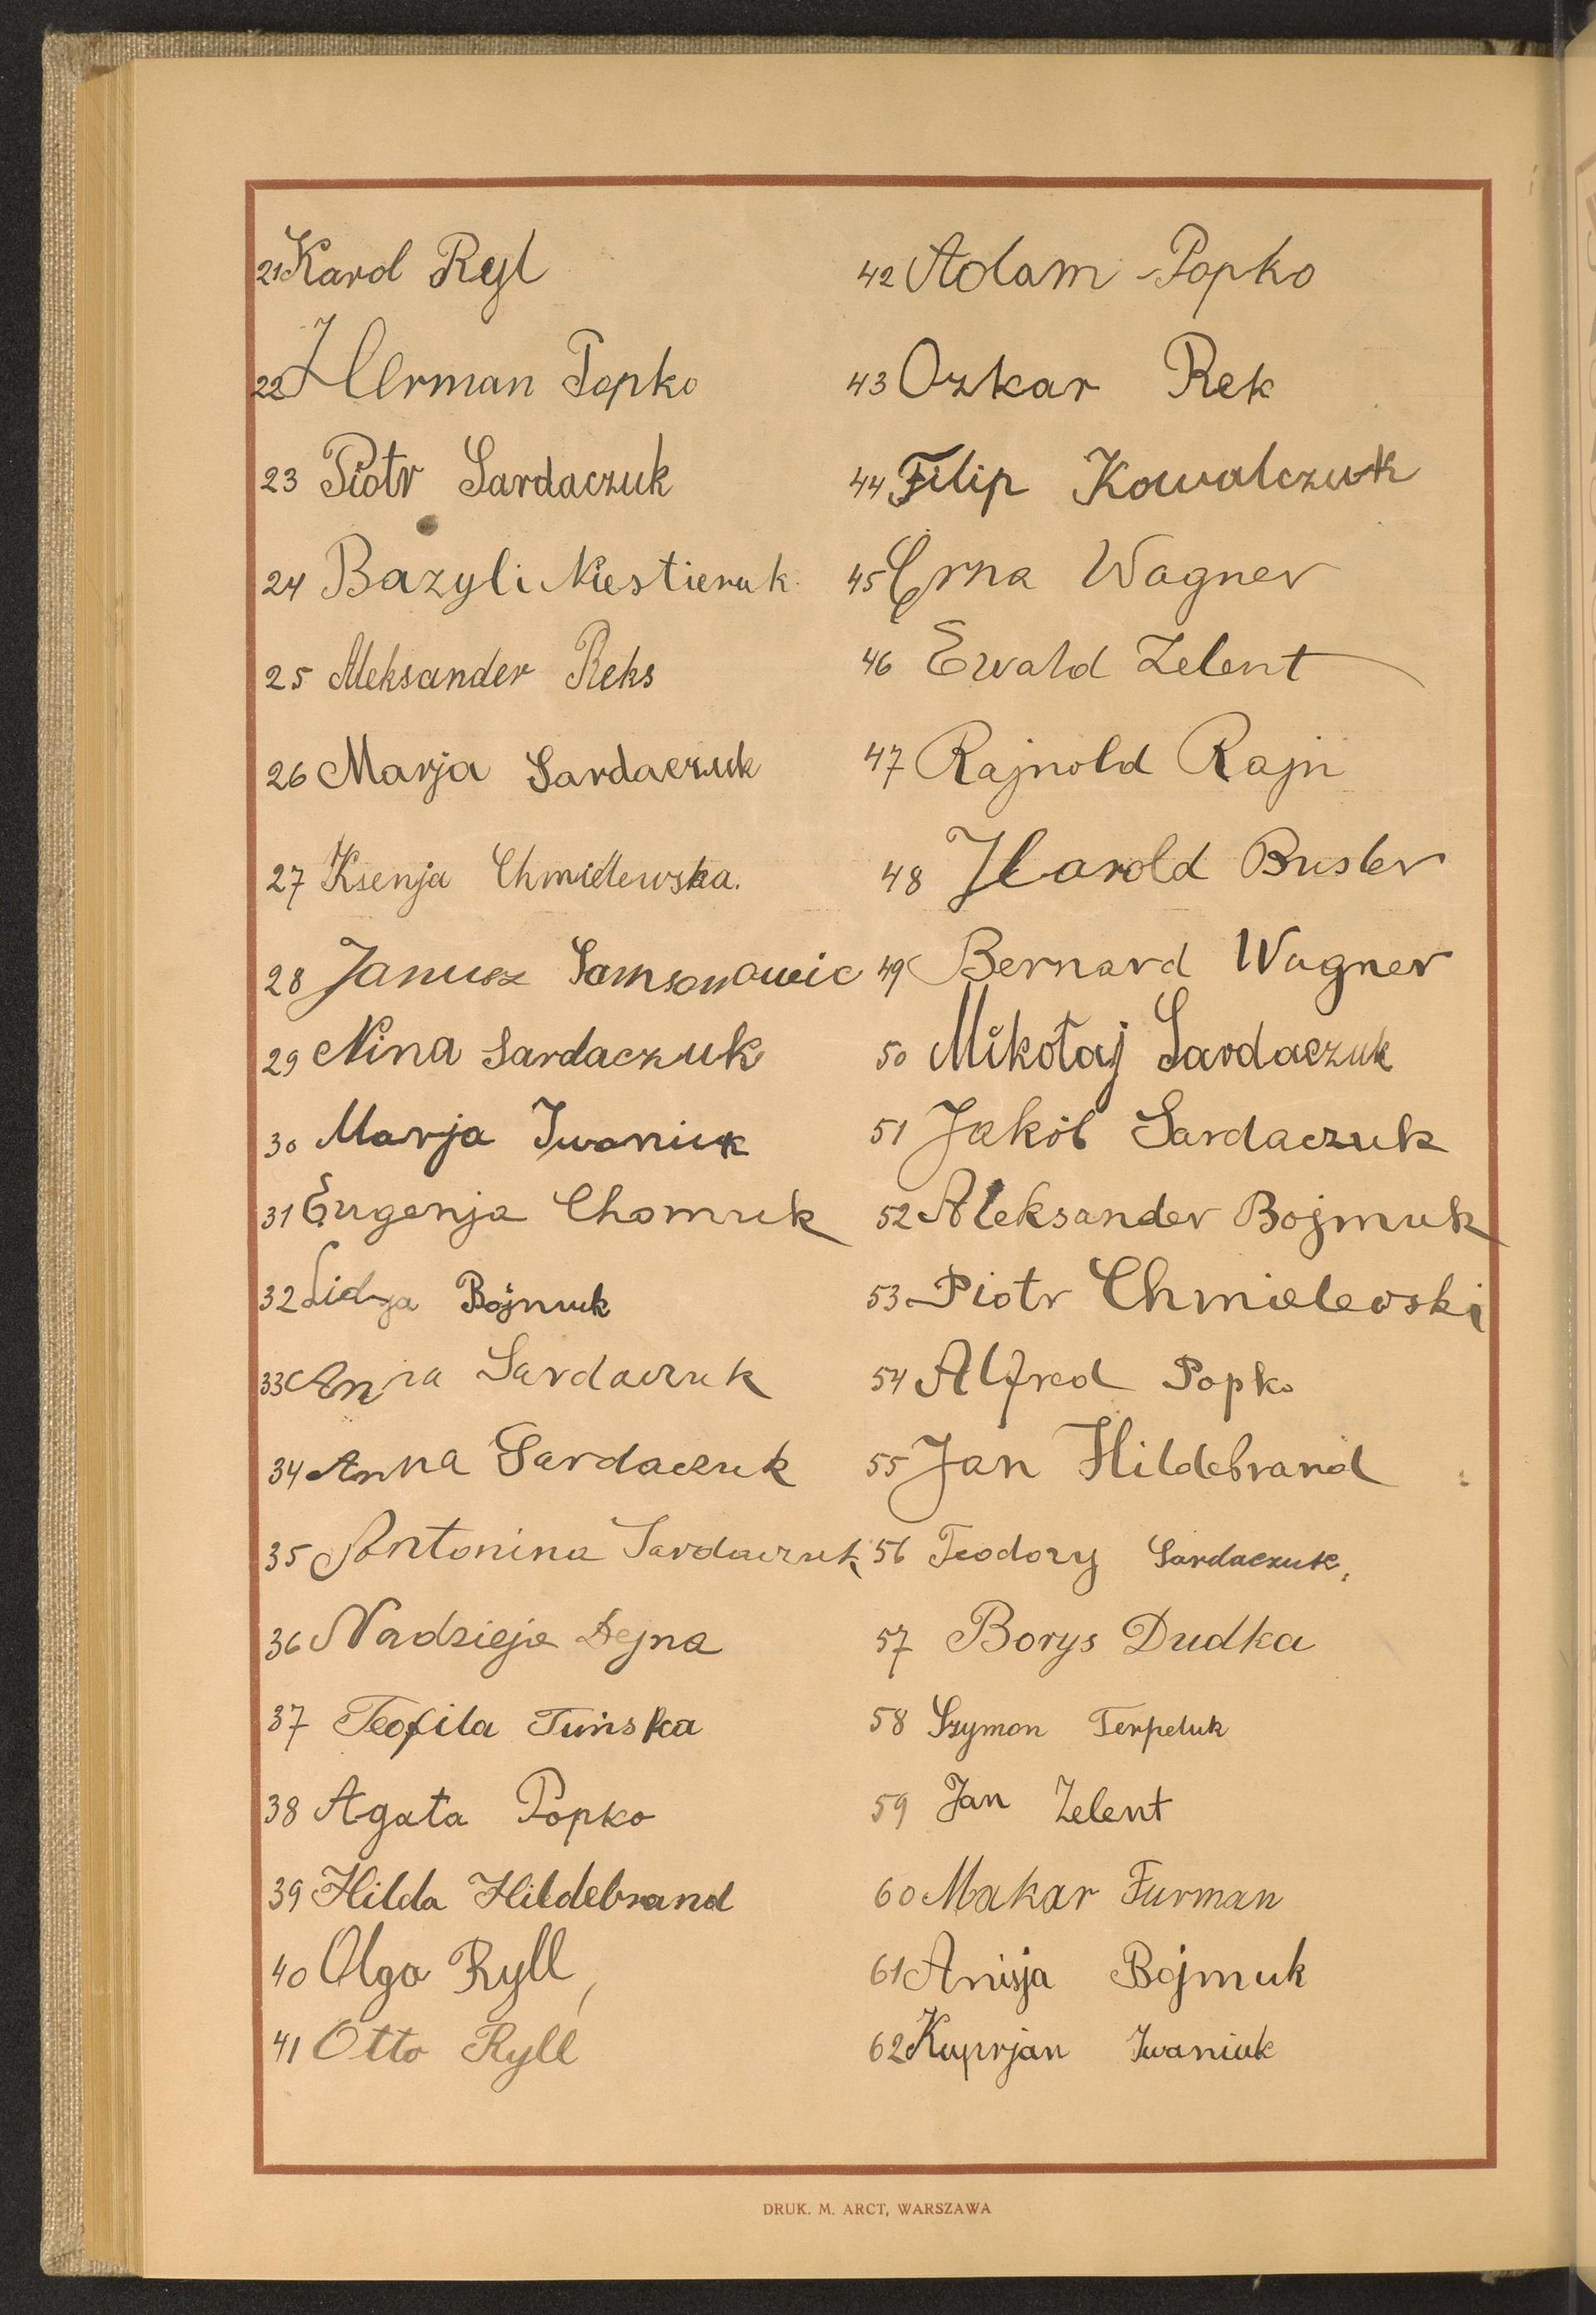 21 Karol Ryl
22 Herman Popko
23 Piotr Sardaczuk
24 Bazyli Niestieruk
25 Aleksander Reks
26 Marja Sardaczuk
27 Ksenja Chmielewska.
28 Janusz Samsonowic
29 Nina Sardaczuk
30 Marja Iwaniuk
31 Eugenja Chomuk
32 Lidja Bojmuk
33 Anna Sardaczuk
34 Anna Sardaczuk
35 Antonina Sardaczuk
36 Nadzieja Dejna
37 Teofila Tuńska
38 Agata Popko
39 Hilda Hildebrand
40 Olga Ryll
41 Otto Ryll
42 Adam Popko
43 Ozkar Rek
44 Filip Kowalczuk
45 Erna Wagner
46 Ewald Zelent
47 Rajnold Rajn
48 Harold Busler
49 Bernard Wagner
50 Mikołaj Sardaczuk
51 Jakób Sardaczuk
52 Aleksander Bojmuk
53 Piotr Chmielewski
54 Alfred Popko
55 Jan Hildebrand
56 Teodozy Sardaczuk,
57 Borys Dudka
58 Szymon Terpeluk
59 Jan Zelent
60 Makar Furman
61 Anisja Bojmuk
62 Kuprjan Iwaniuk
DRUK. M. ARCT, WARSZAWA